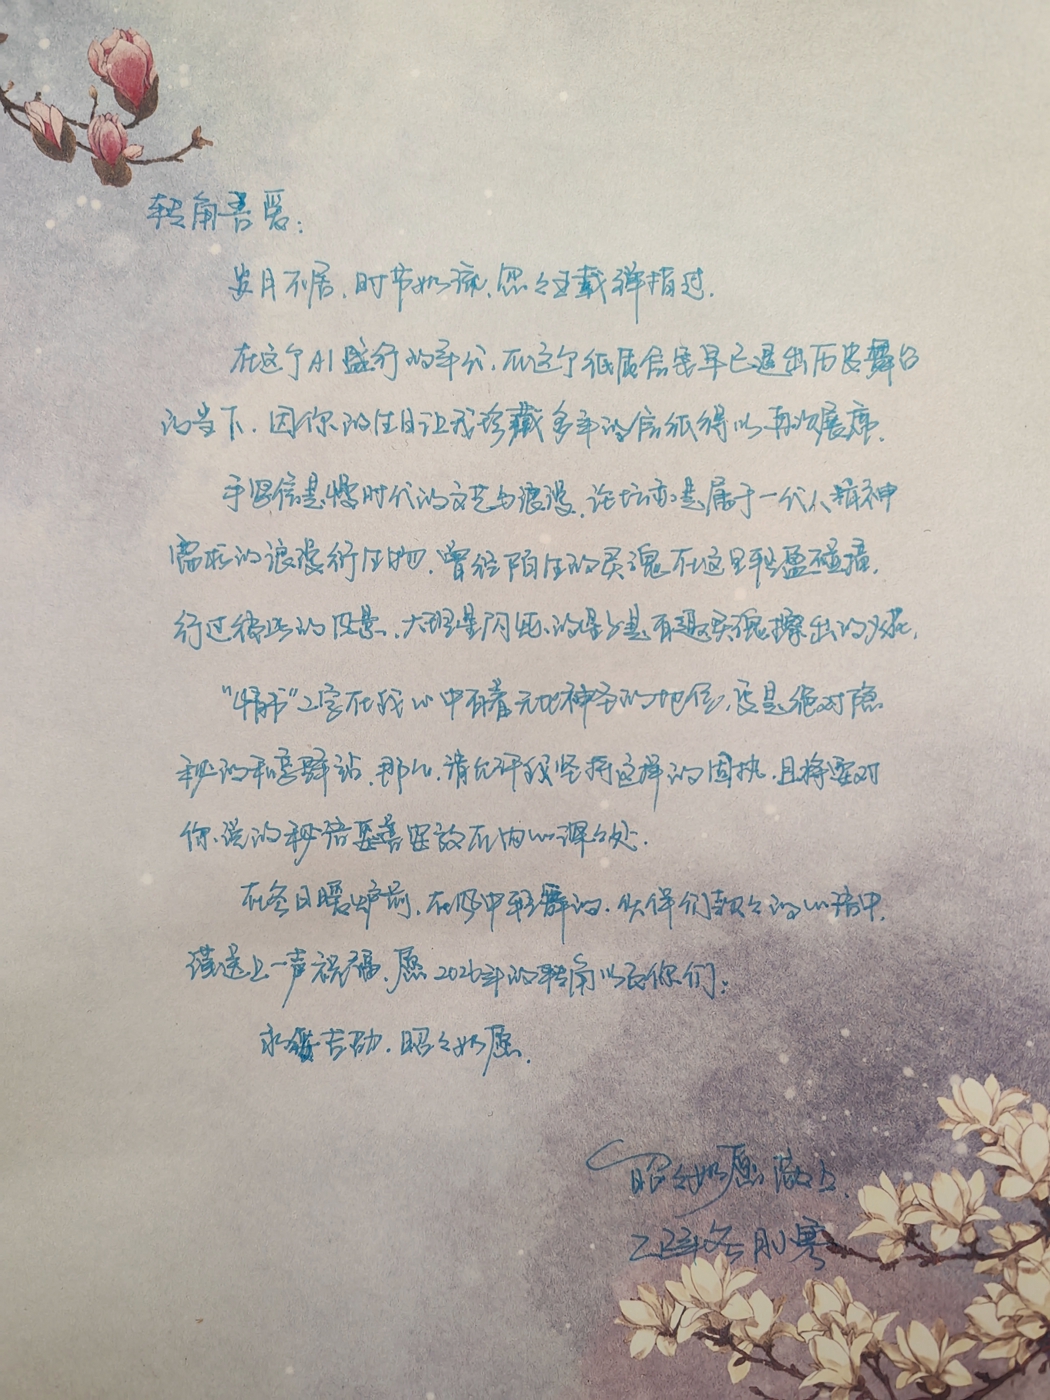 转角吾爱：
岁月不居，时节如流，忽々五载弹指过。
在这个AI盛行的年代，在这个纸质信笺早已退出历史舞台
的当下，因你的生日让我珍藏多年的信纸得以再次展席。
手写信是慢时代的文艺与浪漫，论坛亦是属于一代人精神
需求的浪漫衍生吧，曾经陌生的灵魂在这里轻盈碰撞，
行过彼此的风景，大抵星闪烁的是有趣灵魂擦出的火花。
“情书”二字在我心中有着无比神圣的地位，该是绝对隐
秘的和意群站，那么，请允许我坚持这样的固执，且将要对
你说的秘语妥善安放在内心深々处。
在冬日暖炉前，在风中轻舞的，伙伴们款々的心语中，
谨送上一声祝福，愿2026年的转角以及你们：
永葆吉劭，昭々如愿。
昭々如愿 敬上
乙巳年冬月小寒